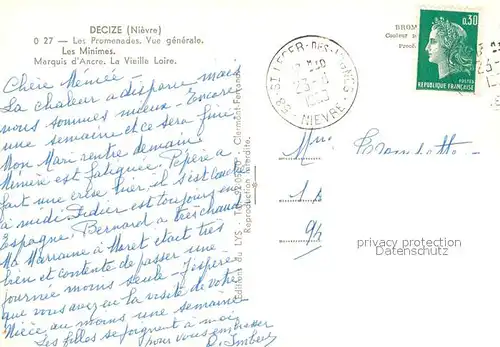 DECIZE (Nièvre)
0 27 — Les Promenades. Vue générale.
Les Minimes.
Marquis d'Ancre. La Vieille Loire.
Chère Mémée —
La chaleur a disparu mais
nous sommes mieux — Encore
une semaine et ce sera fini.
Mon Mari rentre demain.
Mémère est fatiguée. Pépère a
fait une crise hier il s'est couché
à midi. Didier est toujours en
Espagne. Bernard a très chaud
Ma Marraine à Moret était très
bien et contente de passer une
journée moins seule — J'espère
que vous avez eu la visite de votre
Nièce au moins une semaine
Les filles se joignent à moi
pour vous embrasser
D. Imbert
Editions du LYS
Clermont-Ferrand
Reproduction interdite.
58 ST LEGER-DES-VIGNES
NIEVRE
BROM
Couleur
Procé
0,30
POSTES
REPUBLIQUE FRANCAISE
Mme
94
privacy protection
Datenschutz